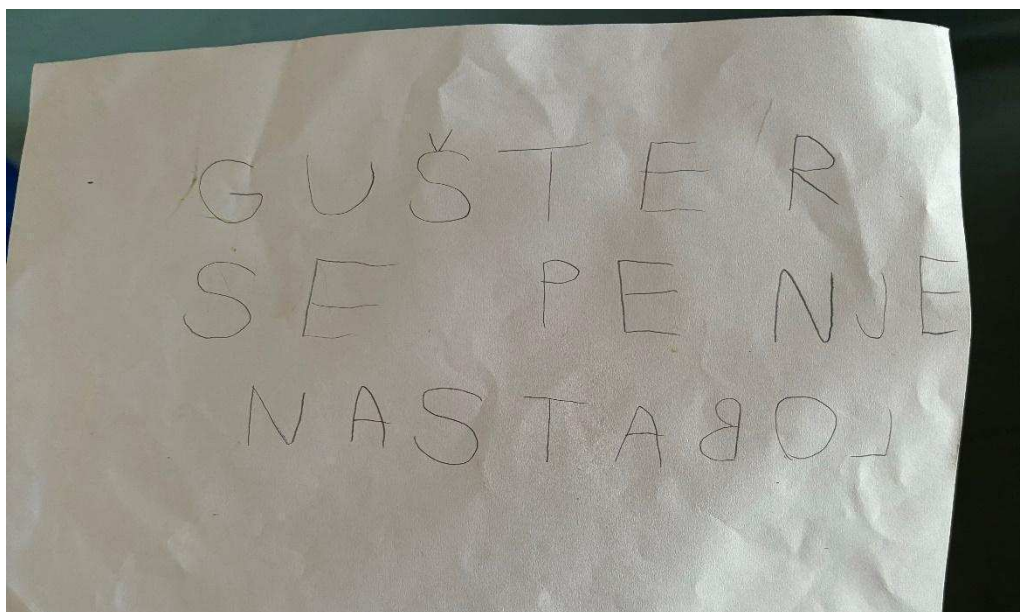 GUŠTER
SE PENJE
NASTABOL